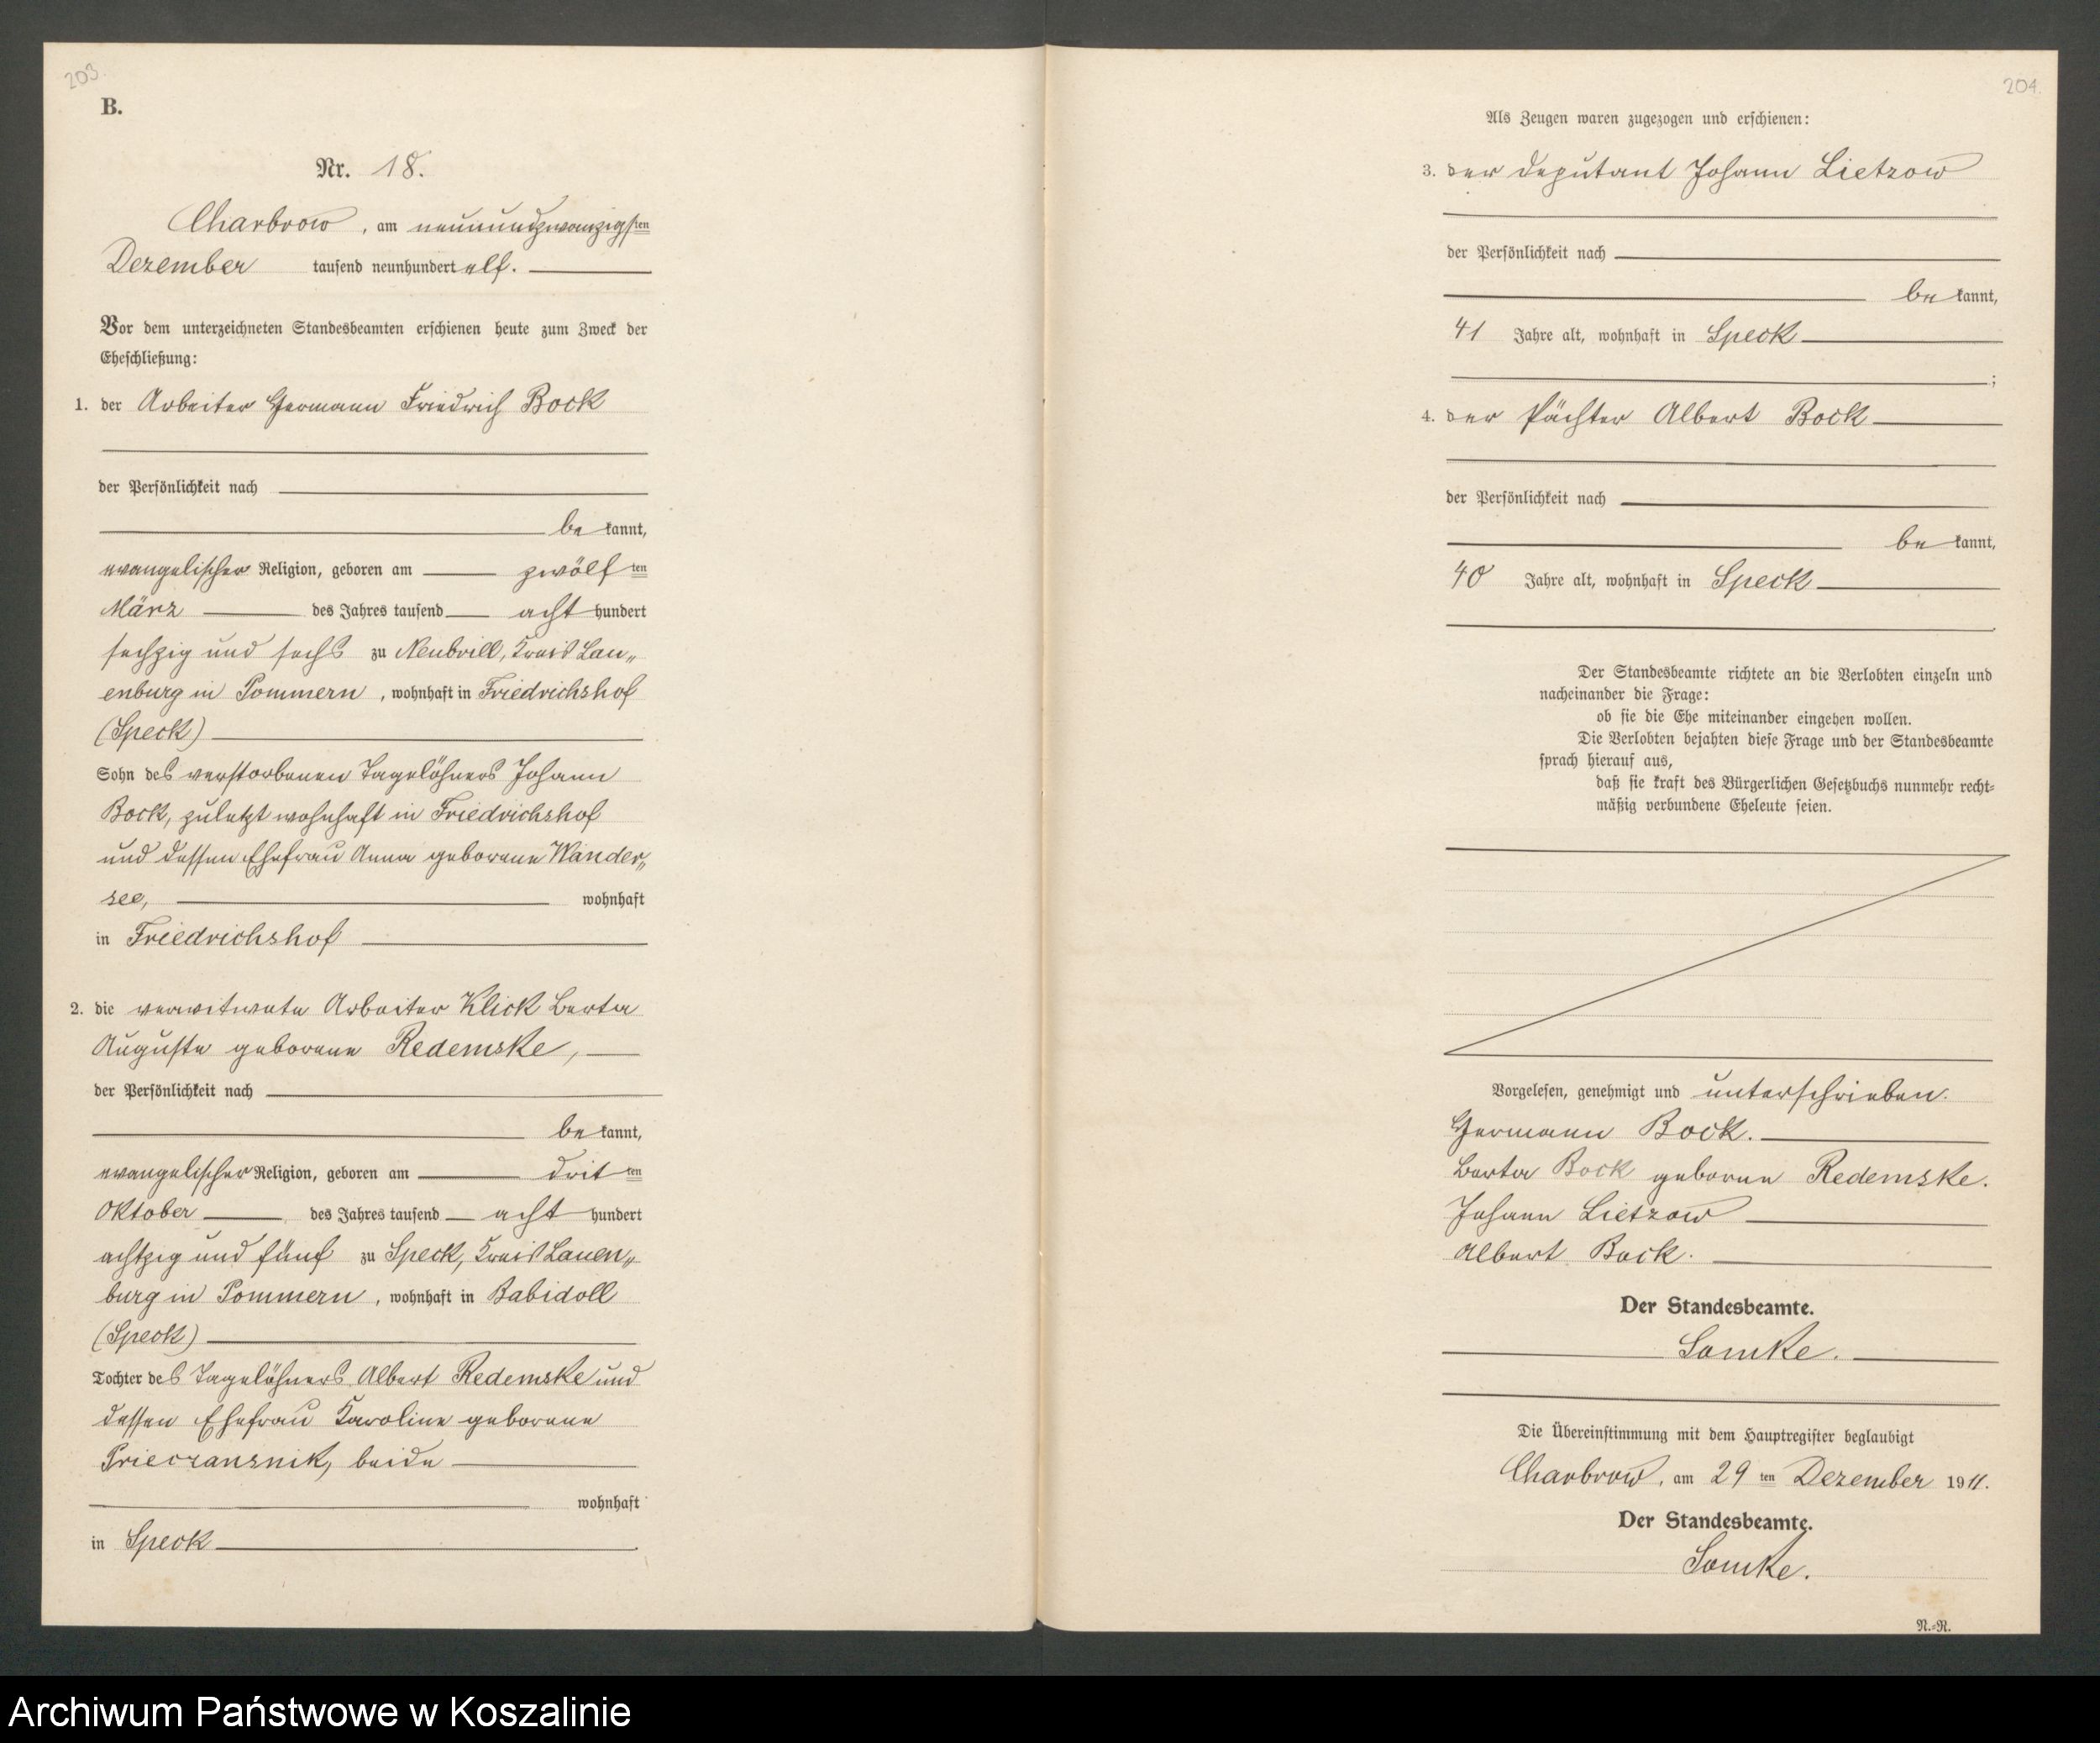 203.
B.
Nr. 18.
Charbrow, am neunundzwanzigsten
Dezember tausend neunhundert elf.
Vor dem unterzeichneten Standesbeamten erschienen heute zum Zweck der
Eheschließung:
1. der Arbeiter Hermann Friedrich Bock
der Persönlichkeit nach
be kannt,
evangelischer Religion, geboren am zwölf ten
März des Jahres tausend acht hundert
sechzig und sechs zu Neubrill, Kreis Lau„
enburg in Pommern, wohnhaft in Friedrichshof
(Speck)
Sohn des verstorbenen Tagelöhners Johann
Bock, zuletzt wohnhaft in Friedrichshof
und dessen Ehefrau Anna geborene Wander„
see, wohnhaft
in Friedrichshof
2. die verwitwete Arbeiter Klick Berta
Auguste geborene Redemske,
der Persönlichkeit nach
be kannt,
evangelischer Religion, geboren am drit ten
Oktober des Jahres tausend acht hundert
achtzig und fünf zu Speck, Kreis Lauen„
burg in Pommern, wohnhaft in Babidoll
(Speck)
Tochter des Tagelöhners Albert Redemske und
dessen Ehefrau Karoline geborene
beide
wohnhaft
in Speck
204.
Als Zeugen waren zugezogen und erschienen:
3. der Deputant Johann Lietzow
der Persönlichkeit nach
be kannt,
41 Jahre alt, wohnhaft in Speck
;
4. der Pächter Albert Bock
der Persönlichkeit nach
be kannt,
40 Jahre alt, wohnhaft in Speck
Der Standesbeamte richtete an die Verlobten einzeln und
nacheinander die Frage:
ob sie die Ehe miteinander eingehen wollen.
Die Verlobten bejahten diese Frage und der Standesbeamte
sprach hierauf aus,
daß sie kraft des Bürgerlichen Gesetzbuchs nunmehr recht-
mäßig verbundene Eheleute seien.
Vorgelesen, genehmigt und unterschrieben.
Hermann Bock.
Berta Bock geborne Redemske.
Johann Lietzow
Albert Bock.
Der Standesbeamte.
Die Übereinstimmung mit dem Hauptregister beglaubigt
Charbrow, am 29 ten Dezember 1911.
Der Standesbeamte.
N.-R.
Archiwum Państwowe w Koszalinie